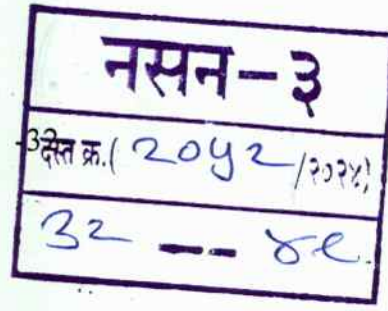 नसन-३
दस्त क्र.( २०५२ /२०२४)
३२ -- ४९